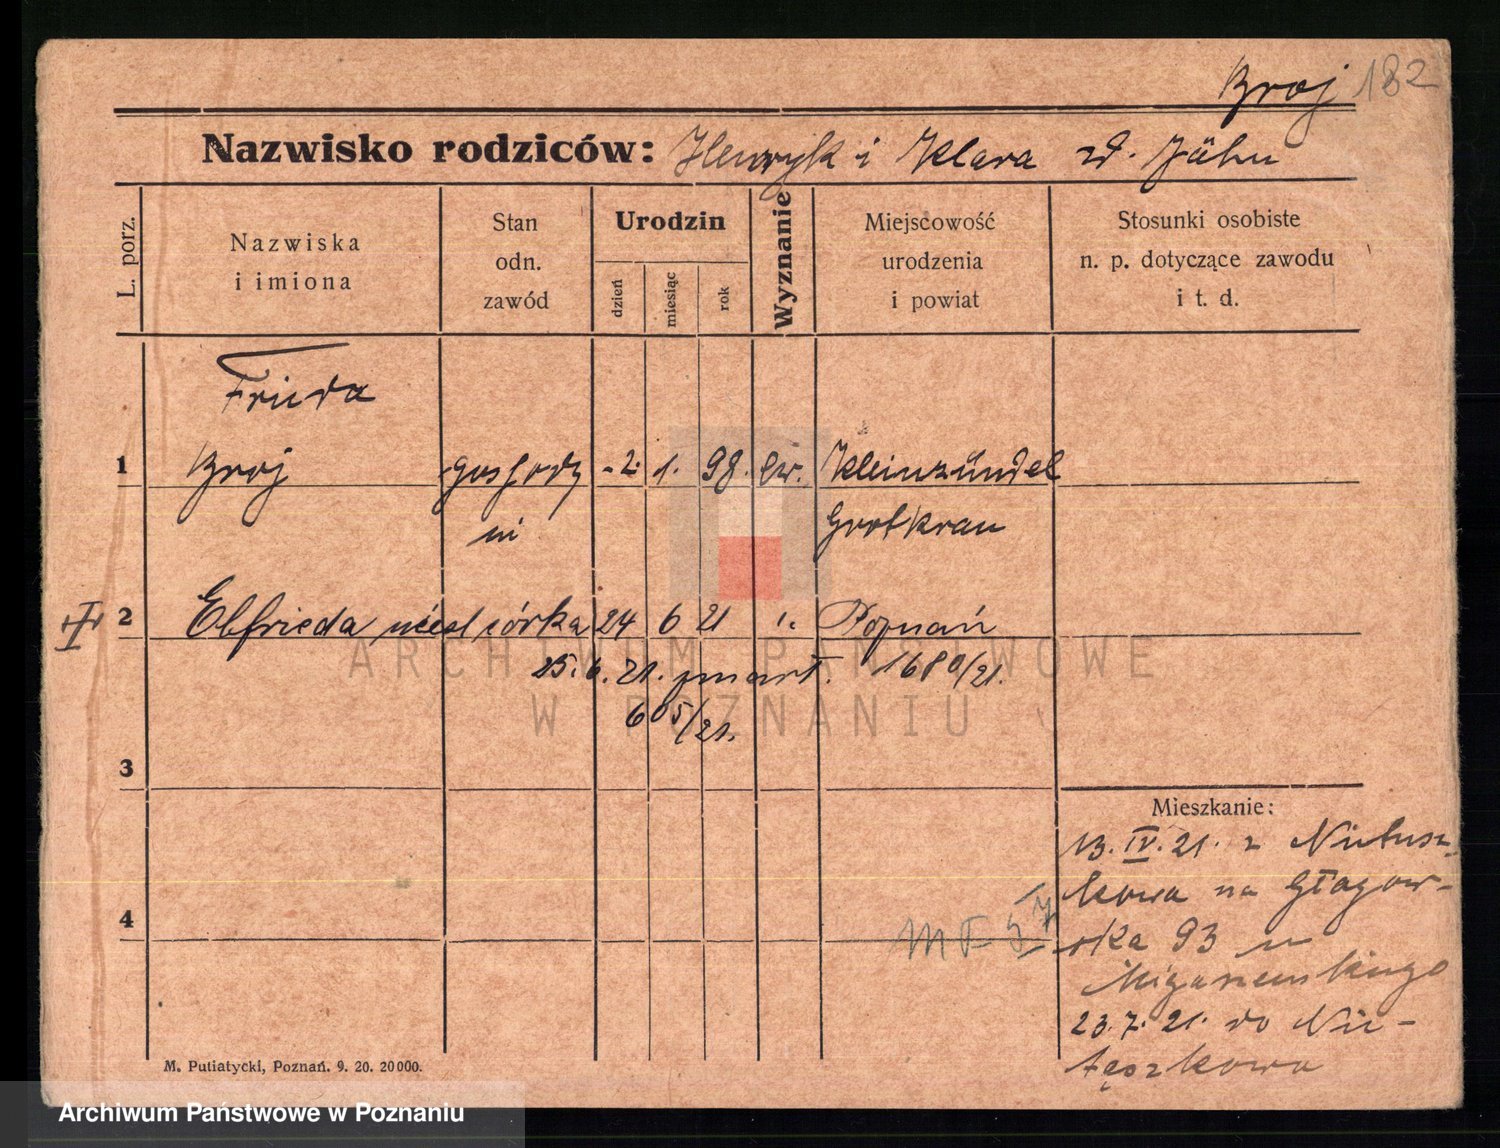 Broj 182
Nazwisko rodziców: Henryk i Klara zd. Jähn
L. porz.
Nazwiska
i imiona
Stan
odn.
zawód
Urodzin
dzień
miesiąc
rok
Wyznanie
Miejscowość
urodzenia
i powiat
Stosunki osobiste
n. p. dotyczące zawodu
i t. d.
Frieda
1 Broj gospody 2. 1. 98. Ew. Kleinzündel
ni Grotkrau
2 Elfrieda nieśl córka 24 6 21 Poznań
25. 6. 21. zmarł. 1680/21.
605/21.
3
4
Mieszkanie:
13. IV. 21. z Nietusz
kowa na Głogow-
ska 93 u
23. 7. 21. do Nie-
tąszkowa
M. Putiatycki, Poznań. 9. 20. 20000.
ARCHIWUM PAŃSTWOWE
W POZNANIU
Archiwum Państwowe w Poznaniu